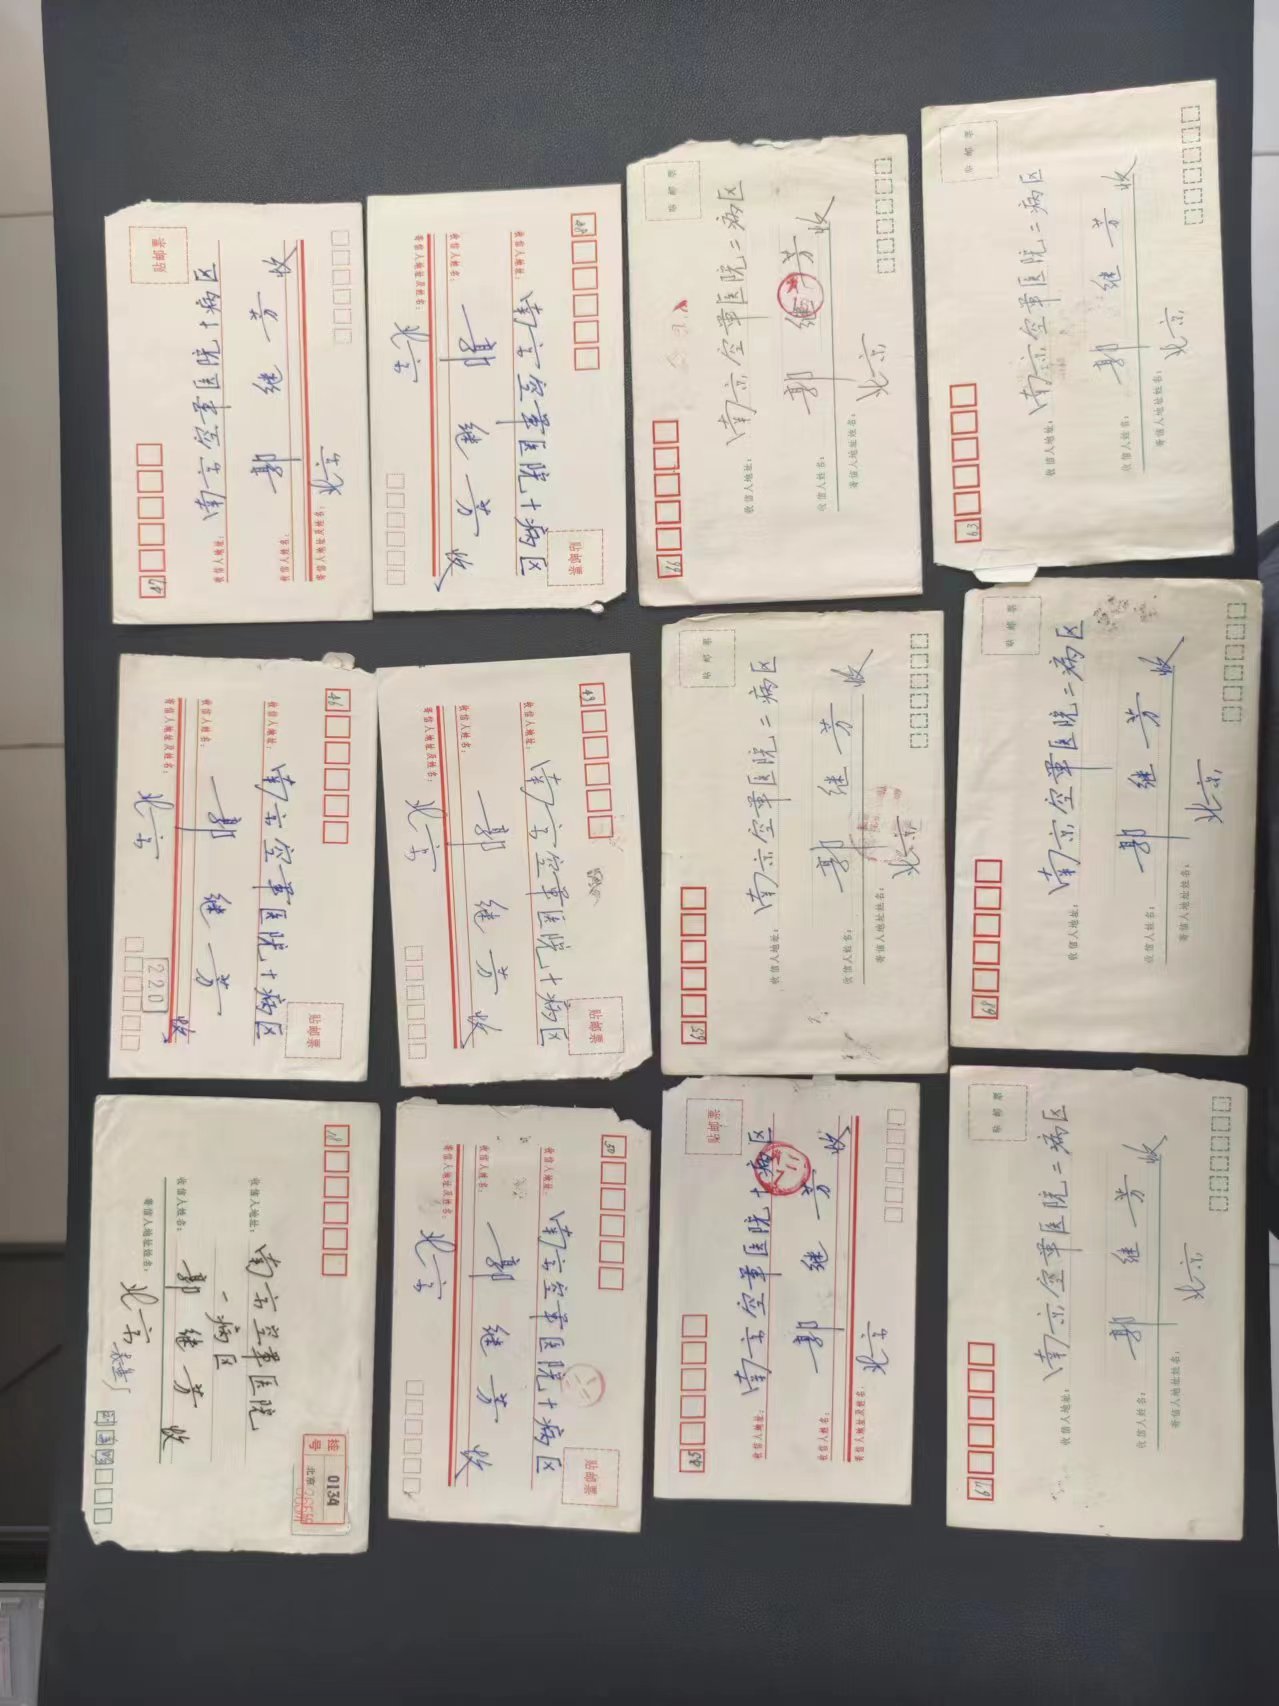 贴邮票
47
收信人地址:
南京空军医院十病区
收信人姓名:
郭继芳 收
寄信人地址及姓名:
北京
48
收信人地址:
南京空军医院十病区
收信人姓名:
郭继芳 收
寄信人地址及姓名:
北京
贴邮票
贴邮票
66
收信人地址:
南京空军医院二病区
收信人姓名:
郭继芳 收
寄信人地址姓名:
北京
贴邮票
63
收信人地址:
南京空军医院二病区
收信人姓名:
郭继芳 收
寄信人地址姓名:
北京
46
收信人地址:
南京空军医院十病区
收信人姓名:
郭继芳 收
寄信人地址及姓名:
北京
2201
贴邮票
49
收信人地址:
南京空军医院十病区
收信人姓名:
郭继芳 收
寄信人地址及姓名:
北京
贴邮票
贴邮票
65
收信人地址:
南京空军医院二病区
收信人姓名:
郭继芳 收
寄信人地址姓名:
北京
贴邮票
68
收信人地址:
南京空军医院二病区
收信人姓名:
郭继芳 收
寄信人地址姓名:
北京
18
收信人地址:
南京空军医院
一病区
收信人姓名:
郭继芳 收
寄信人地址姓名:
北京
挂号
0134
北京
50
收信人地址:
南京空军医院十病区
收信人姓名:
郭继芳 收
寄信人地址及姓名:
北京
贴邮票
贴邮票
45
收信人地址:
南京空军医院十病区
收信人姓名:
郭继芳 收
寄信人地址及姓名:
北京
贴邮票
67
收信人地址:
南京空军医院二病区
收信人姓名:
郭继芳 收
寄信人地址姓名:
北京